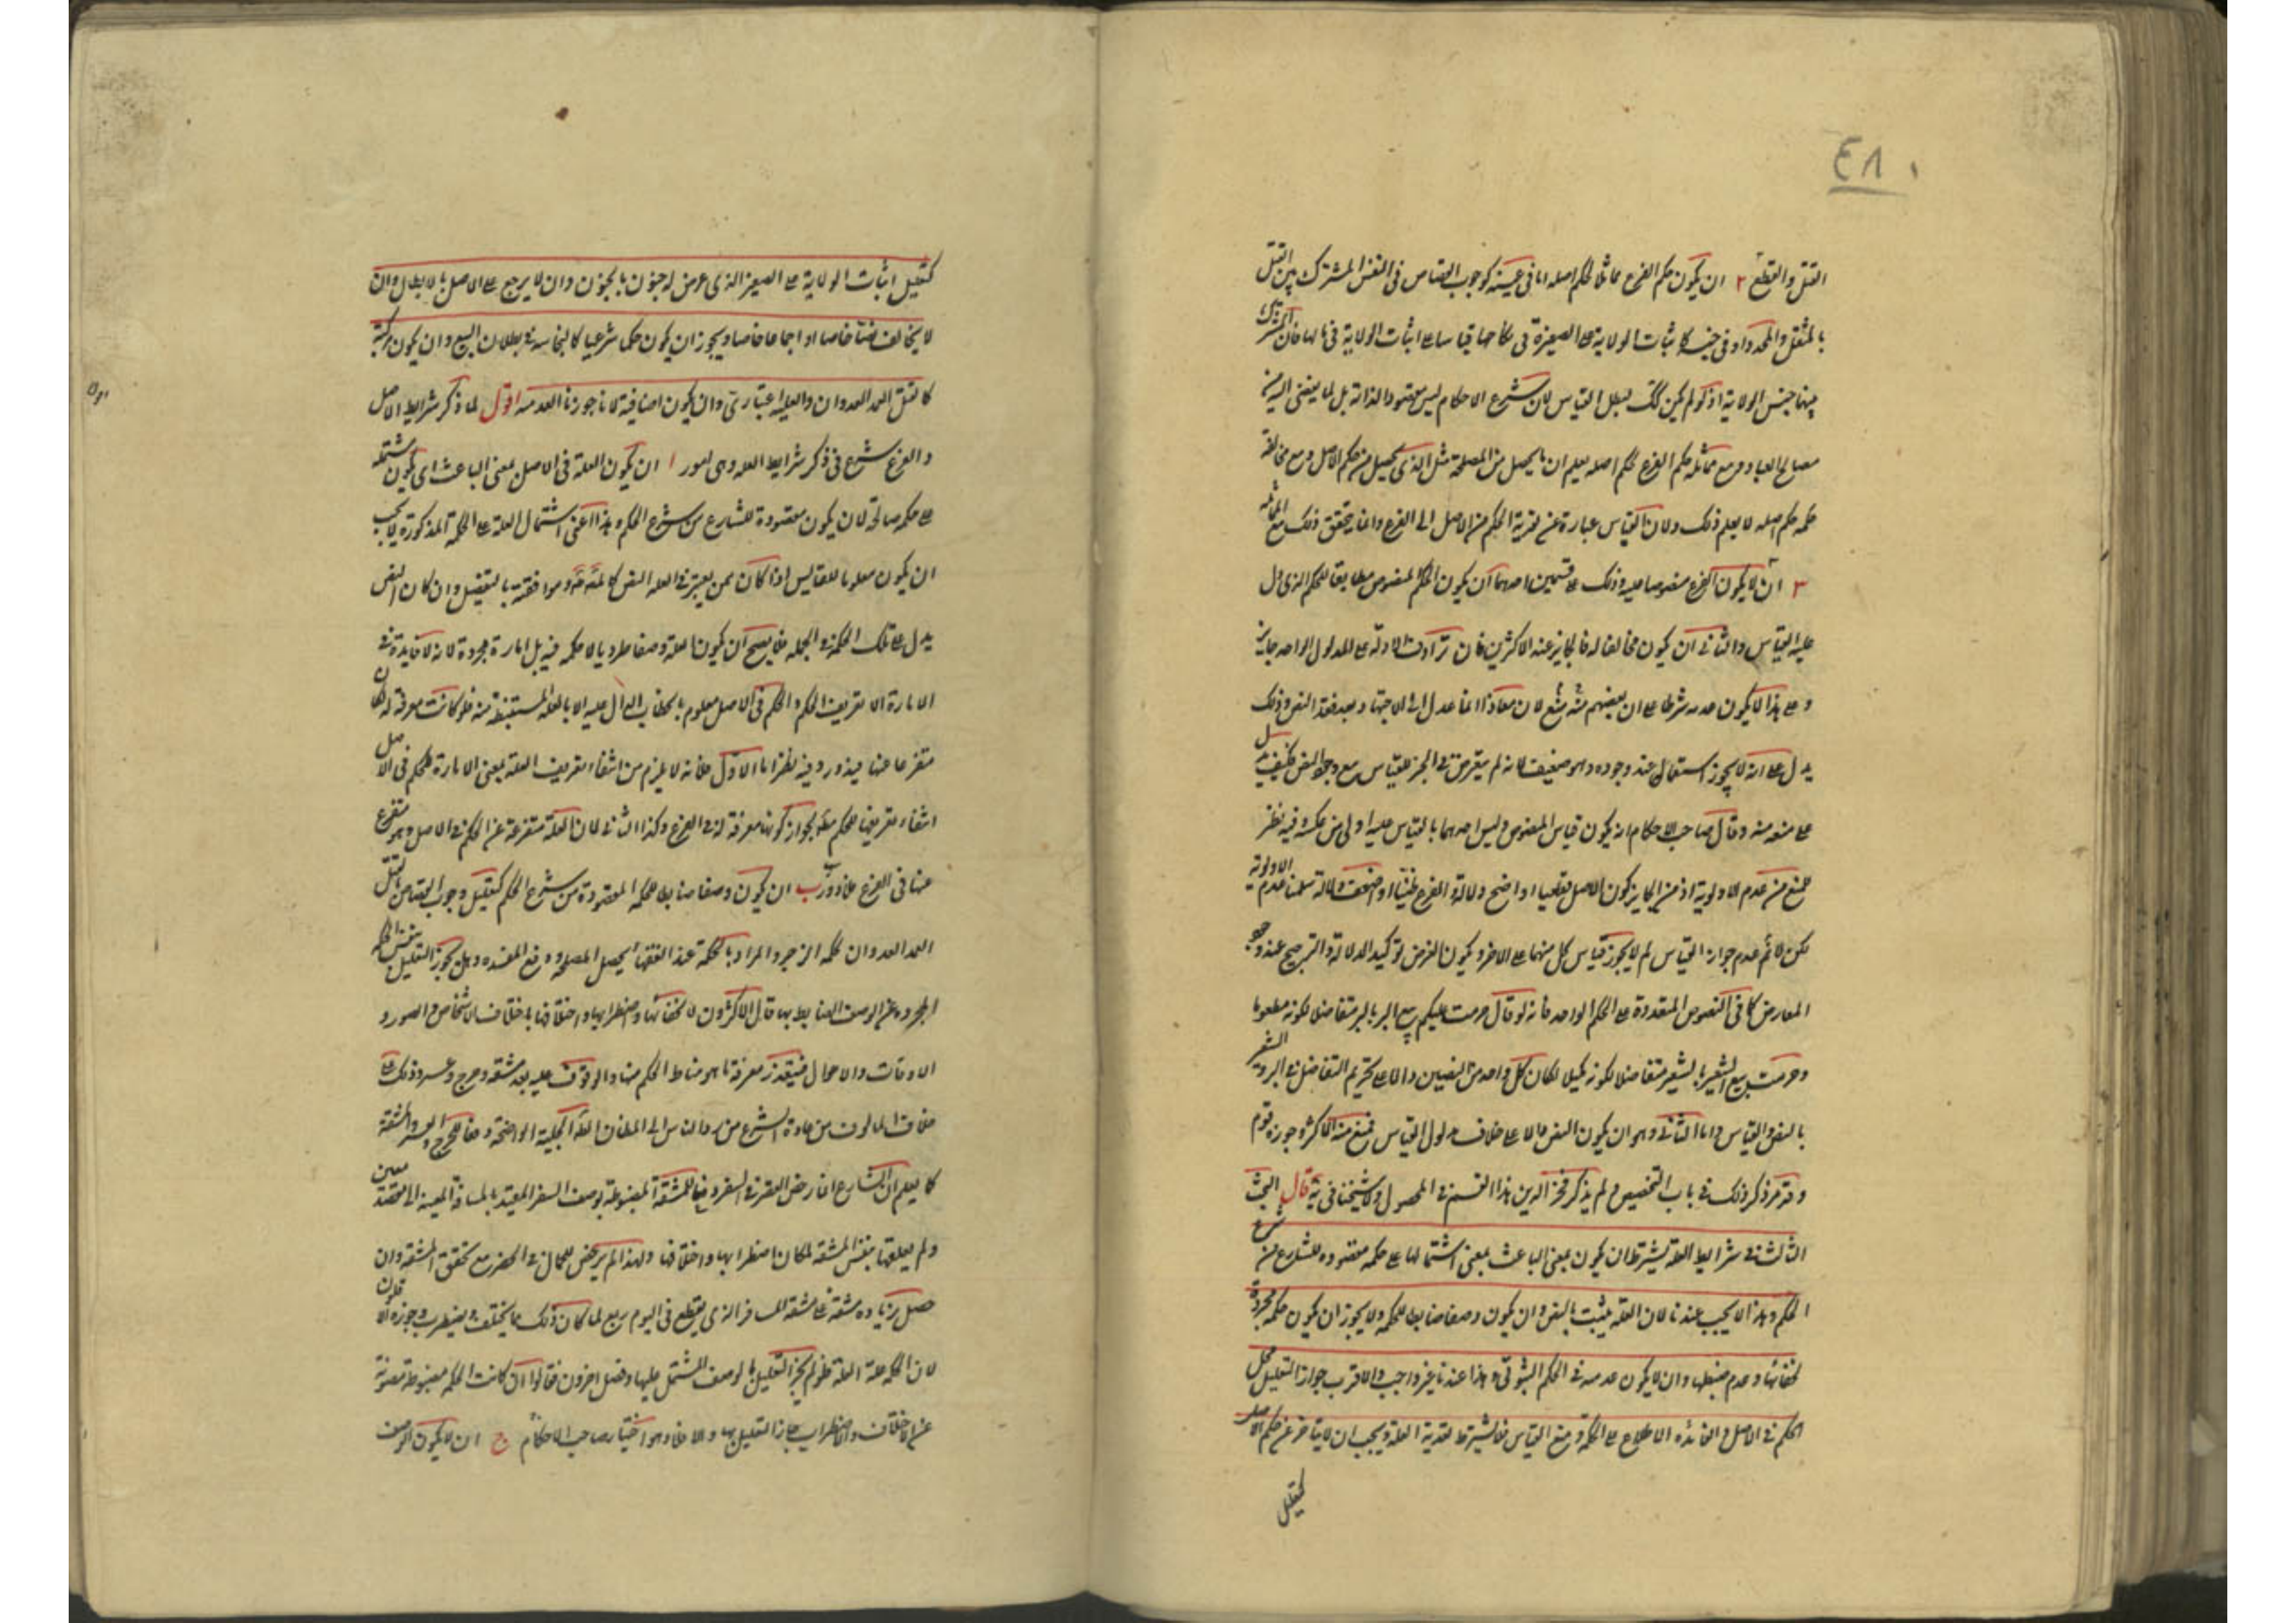 ٤٨٠
القتل والقطع ٢ ان يكون حكم الفرع مماثلا لحكم اصله اما في عينه كوجوب القصاص في النفس المشترك بين القتل
بالمثقل والمحدد او في جنسه كاثبات الولاية على الصغيرة في نكاحها قياسا على اثبات الولاية في مالها فان المشترك
بينهما جنس الولاية اذ لو لم يكن كك لبطل القياس لان شرع الاحكام ليس مقصودا لذاته بل لما يفضي اليه من
مصالح العباد ومع مماثلة حكم الفرع لحكم اصله يعلم ان ما يحصل من المصلحة مثل الذي يحصل من حكم الاصل ومع مخالفة
حكمه حكم اصله لا يعلم ذلك ولان القياس عبارة عن تعدية الحكم من الاصل الى الفرع وانما يتحقق ذلك مع المماثلة
٣ ان لا يكون الفرع منصوصا عليه وذلك على قسمين احدهما ان يكون الحكم المنصوص مطابقا للحكم الذي دل
عليه القياس والثاني ان يكون مخالفا له فالجايز عند الاكثرين فان ترادف الادلة على المدلول الواحد جايز
وعلى هذا لا يكون عدمه شرطا على ان بعضهم منع لان معاذا انما عدل الى الاجتهاد بعد فقد النص وذلك
يدل على انه لا يجوز استعماله عند وجوده وهو ضعيف لانه لم يتعرض في الخبر للقياس مع وجود النص فكيف يدل
على منعه منه وقال صاحب الاحكام انه يكون قياس المنصوص وليس احدهما بالقياس عليه اولى من عكسه وفيه نظر
للمنع من عدم الاولوية اذ من الجايز كون الاصل قطعيا او اوضح دلالة والفرع ظنيا او اضعف دلالة سلمنا عدم الاولوية
لكن لا نم عدم جواز القياس لم لا يجوز قياس كل منهما على الاخر ويكون الغرض توكيد الدلالة والترجيح عند وجود
المعارض كما في النصوص المتعددة على الحكم الواحد فانه لو قال حرمت عليكم بيع البر بالبر متفاضلا لكونه مطعوما
وحرمت بيع الشعير بالشعير متفاضلا لكونه مكيلا لكان كل واحد من النصين دالا على تحريم التفاضل في البر والشعير
بالنص والقياس واما الثاني وهو ان يكون النص دالا على خلاف مدلول القياس فمنع منه الاكثر وجوزه قوم
وقد مر ذكر ذلك في باب التخصيص ولم يذكر فخر الدين هذا القسم في المحصول ولا شيخنا في يه قال البحث
الثالث في شرايط العلة يشترط ان يكون بمعنى الباعث بمعنى اشتمالها على حكمة مقصودة للشارع من شرع
الحكم وهذا لا يجب عندنا لان العلة يثبت بالنص وان يكون وصفا ضابطا للحكمة ولا يجوز ان يكون حكمة مجردة
لخفائها وعدم ضبطها وان لا يكون عدمية في الحكم الثبوتي وهذا عندنا غير واجب والاقرب جواز التعليل بمحل
الحكم في الاصل والفائدة الاطلاع على الحكمة ومنع القياس فلا يشترط تعدية العلة ويجب ان لا يتاخر عن حكم الاصل
كتعليل
كتعليل اثبات الولاية على الصغير الذي عرض له جنون بالجنون وان لا يرجع على الاصل بالابطال وان
لا يخالف نصا خاصا او اجماعا خاصا ويجوز ان يكون حكما شرعيا كالنجاسة في بطلان البيع وان يكون مركبة
كالقتل العمد العدوان والعلية اعتباري وان يكون اضافية لانا جوزنا العدمية اقول لما ذكر شرايط الاصل
والفرع شرع في ذكر شرايط العلة وهي امور ا ان يكون العلة في الاصل بمعنى الباعث اي يكون مشتملة
على حكمة صالحة لان يكون مقصودة للشارع من شرع الحكم وهذا اعني اشتمال العلة على الحكمة المذكورة لا يجب
ان يكون معلوما للقايس اذا كان ممن يعتبر في العلة النص كالمصـ قده وموافقيه بالتفصيل وان كان النص
يدل على تلك الحكمة في الجملة فلا يصح ان يكون العلة وصفا طرديا لا حكمة فيه بل امارة مجردة لانه لا فايدة في
الامارة الا تعريف الحكم والحكم في الاصل معلوم بالخطاب الدال عليه لا بالعلة المستنبطة منه فلو كانت معرفة له كان
متفرعا عنها فيدور وفيه نظر اما الاول فلانه لا يلزم من انتفاء تعريف العلة بمعنى الامارة للحكم في الاصل
انتفاء تعريفها للحكم مط لجواز كونها معرفة له في الفرع وكذا الثاني لان العلة متفرعة عن الحكم في الاصل وهو متفرع
عنها في الفرع فلا دور ب ان يكون وصفا ضابطا للحكمة المقصودة من شرع الحكم كتعليل وجوب القصاص بالقتل
العمد العدوان لحكمة الزجر والمراد بالحكمة عند الفقهاء تحصيل المصلحة ودفع المفسدة وهل يجوز التعليل بنفس الحكمة
المجردة عن الوصف الضابط بها قال الاكثرون لا لخفائها واضطرابها واختلافها باختلاف الاشخاص والصور و
الاوقات والاحوال فيتعذر معرفة ما هو مناط الحكم منها والوقوف عليه بعد مشقة وحرج وعسر وذلك على
خلاف المالوف من عادة الشرع من رد الناس الى المظان الظاهرة الجلية الواضحة دفعا للحرج والعسر والمشقة
كما يعلم ان الشارع انما رخص القصر في السفر دفعا للمشقة المضبوطة بوصف السفر المقيد بالمسافة المعينة الى مقصد معين
ولم يعلقها بنفس المشقة لمكان اضطرابها واختلافها ولهذا لم يرخص للحمال في الحضر مع تحقق المشقة وان
حصل زيادة مشقة على مشقة المسافر الذي يقطع في اليوم ربع لما كان ذلك مما يختلف ويضطرب وجوزه الاقلون
لان الحكمة علة العلة فلو لم يجز التعليل بالوصف المشتمل عليها وفصل اخرون فقالوا ان كانت الحكمة مضبوطة مصونة
عن الاختلاف والاضطراب جاز التعليل بها والا فلا وهو اختيار صاحب الاحكام ج ان لا يكون الوصف